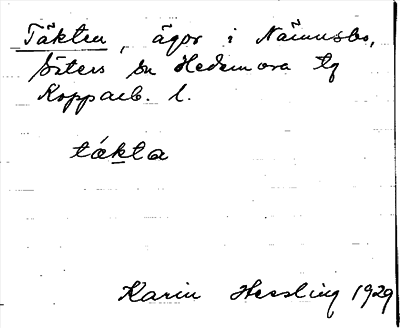 Täkten, ägor i Nämnsbo,
Säters sn Hedemora tg
Kopparb. l.
täkta
Karin Hessling 1929